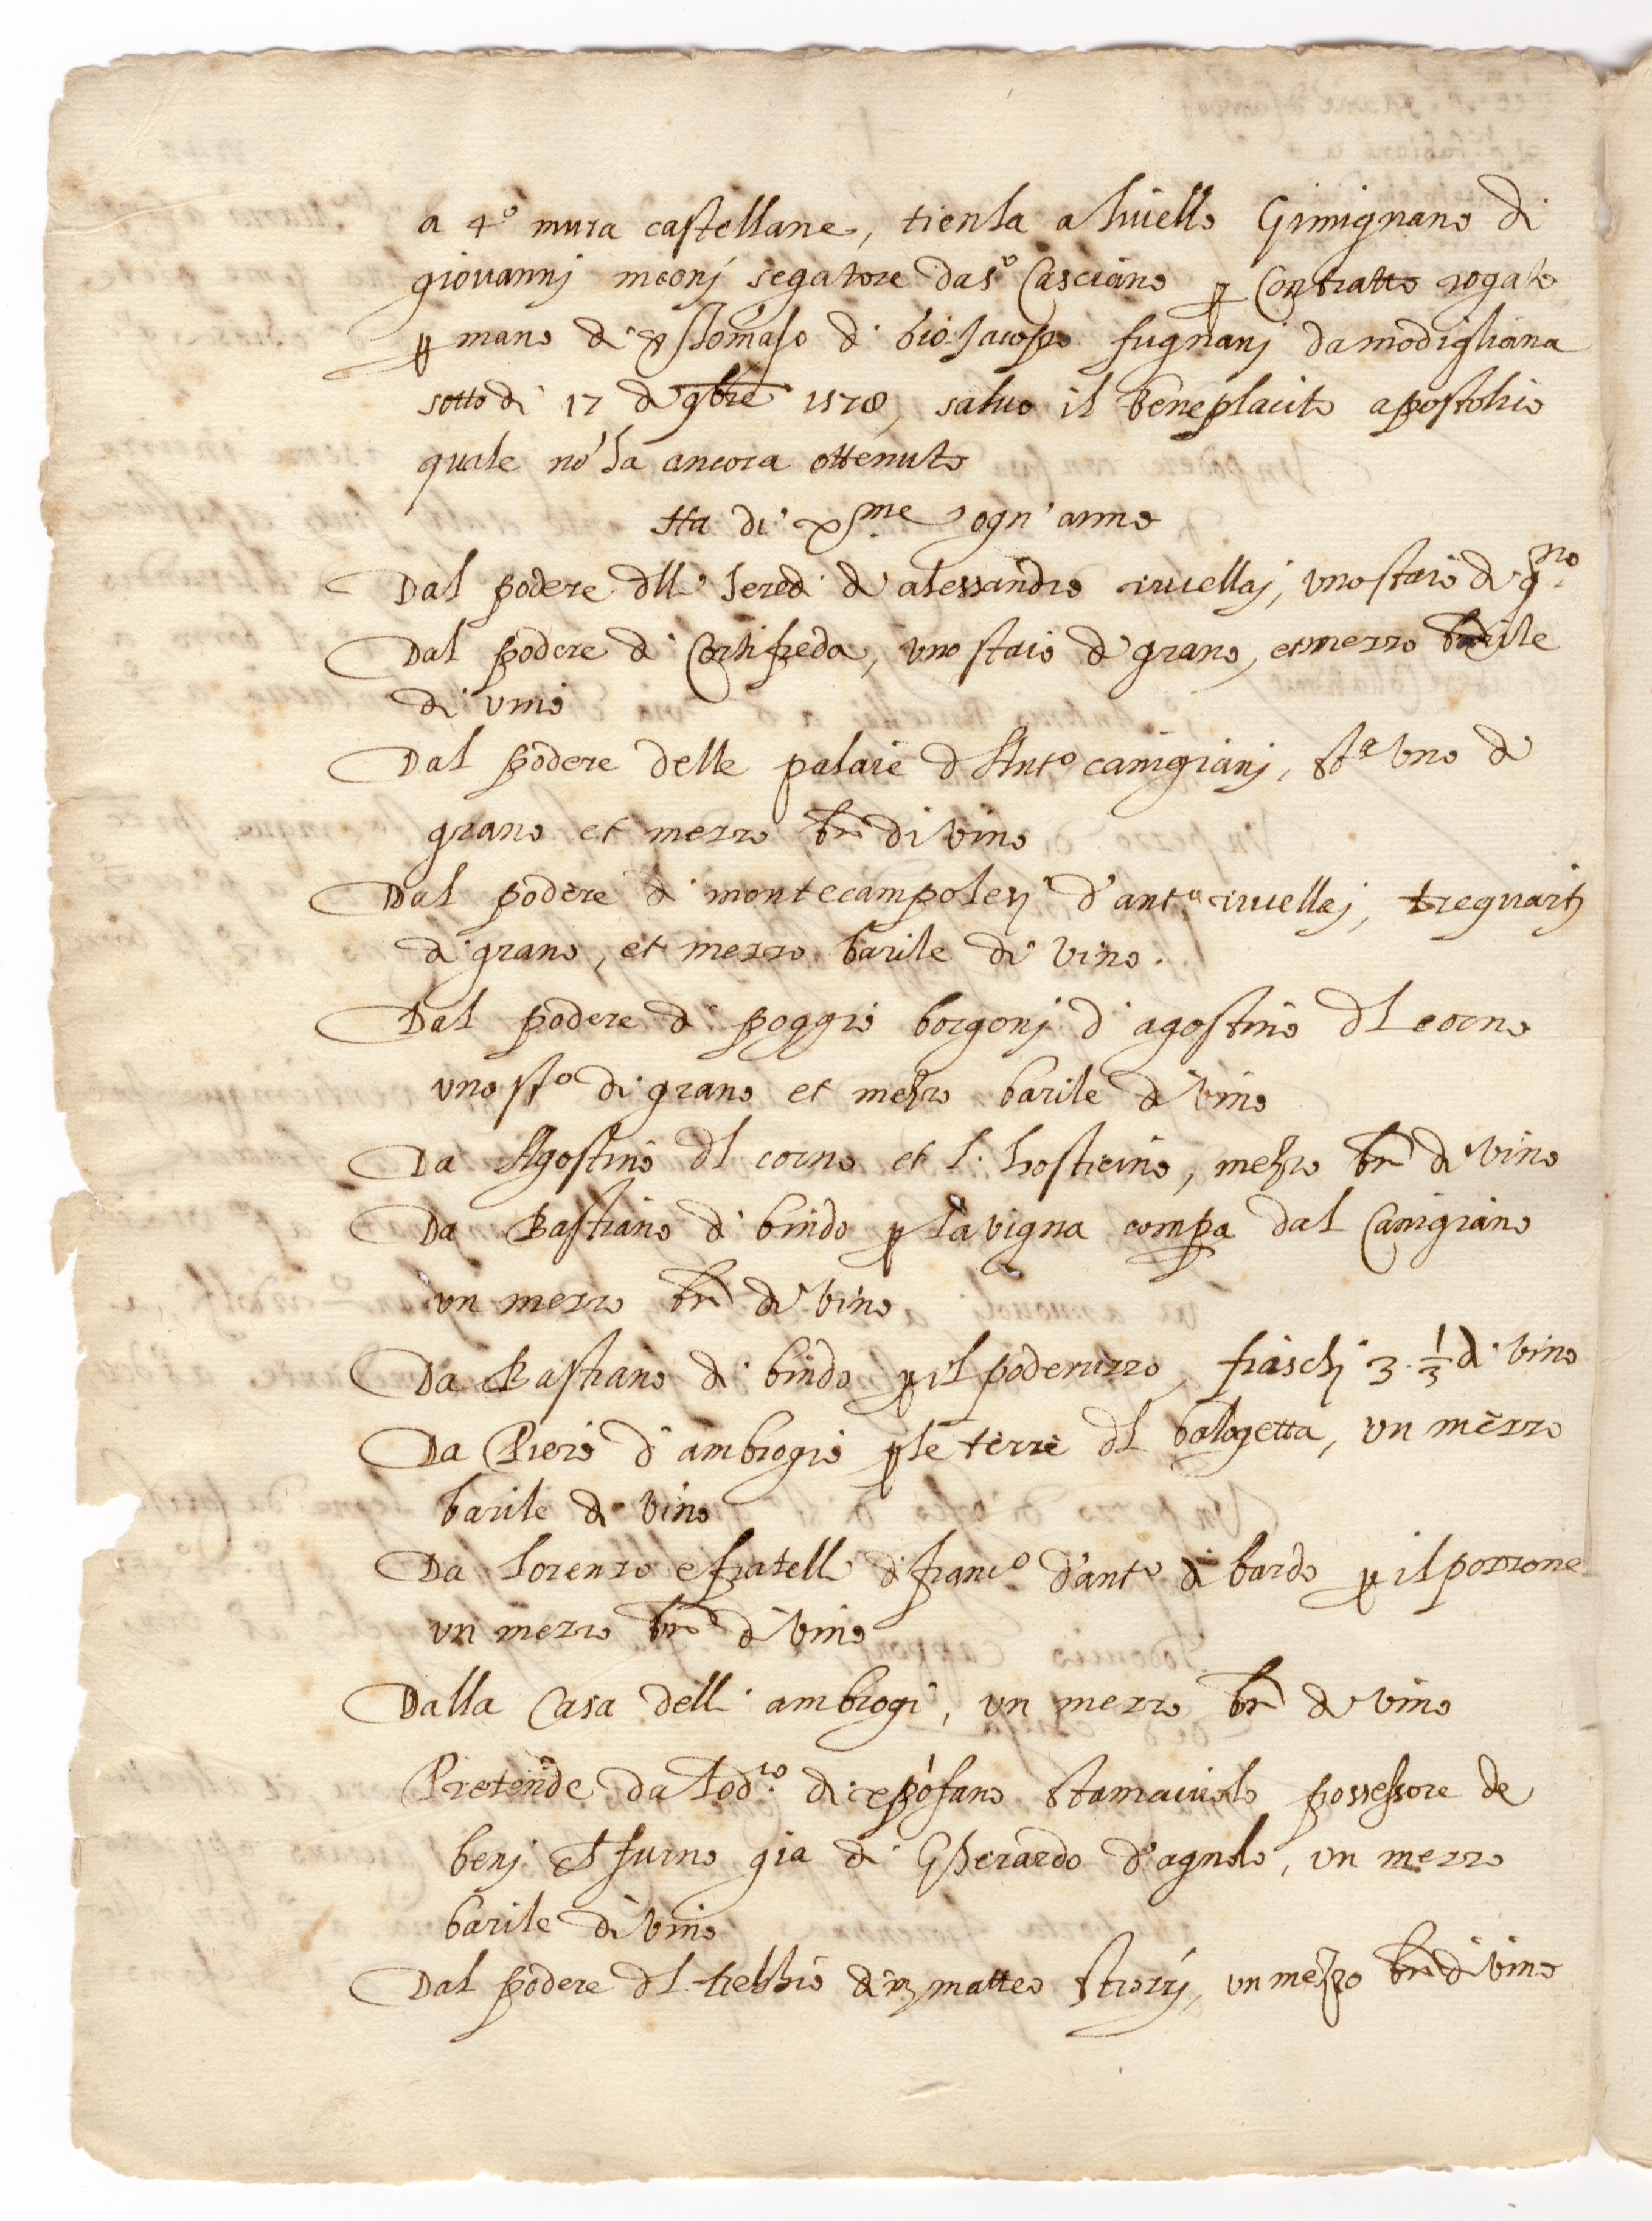 a 4° mura castellane, tienla a livello Gimignano di
giovannj meonj segatore da s° Casciano p Contratto rogato
p mano di s Tomaso di bio Jacopo fugnanj da modigliana
sotto di 17 di 9bre 1578, salvo il beneplacito apostolico
quale nó ha ancora ottenuto
Ha di xme ogn' anno
Dal podere dll' heredi di alessandro rucellaj, uno staio di gno
Dal podere di Cortifreda, uno staio di grano, et mezzo barile
di vino
Dal podere delle palaie d Anto canigianj, sta uno di
grano et mezzo br di vino
Dal podere di montecampolesi d'anto rucellaj, tre quarti
di grano, et mezzo barile di vino.
Dal podere di poggio borgonj d' agostino dl corno
uno sto di grano et mezzo barile di vino
Da Agostino dl corno et l. hosticino, mezzo br di vino
Da Bastiano di bindo p la vigna compa dal Canigiano
un mezzo br di vino
Da Bastiano di bindo p il poderuzzo, fiaschj 3 1/3 di vino
Da Piero d' ambrogio p le terre dl balogetta, un mezzo
barile di vino
Da Lorenzo e fratelli di franco d'anto di bardo p il pozzone
un mezzo br di vino
Dalla Casa delli ambrogi, un mezzo br di vino
Pretende da Lodco di xpófano stamaiuolo possessore de
benj dl furno gia di Gherardo d'agnolo, un mezzo
barile di vino
Dal podere dl trebbio di matteo Strozzj, un mezzo br di vino